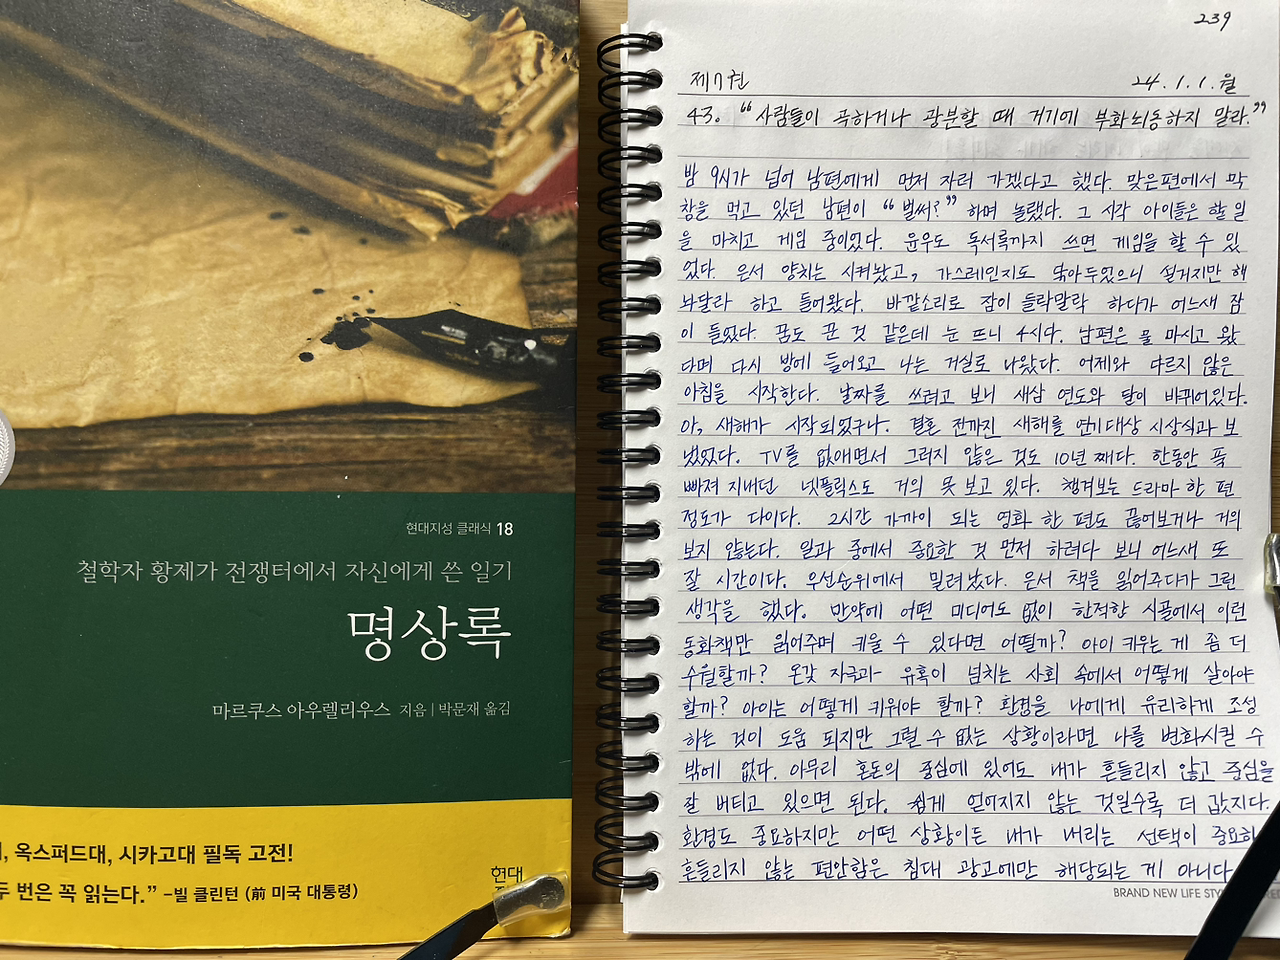 현대지성 클래식 18
철학자 황제가 전쟁터에서 자신에게 쓴 일기
명상록
마르쿠스 아우렐리우스 지음 | 박문재 옮김
, 옥스퍼드대, 시카고대 필독 고전!
번은 꼭 읽는다.” –빌 클린턴 (前 미국 대통령)
현대
239
제7권
24.1.1.월
43. “사람들이 곡하거나 광분할 때 거기에 부화뇌동하지 말라.”
밤 9시가 넘어 남편에게 먼저 자러 가겠다고 했다. 맞은편에서 막
창을 먹고 있던 남편이 “벌써?” 하며 놀랬다. 그 시각 아이들은 할 일
을 마치고 게임 중이었다. 윤우도 독서록까지 쓰면 게임을 할 수 있
었다. 은서 양치는 시켜놨고, 가스레인지도 닦아두었으니 설거지만 해
놔달라 하고 들어왔다. 바깥소리로 잠이 들락말락 하다가 어느새 잠
이 들었다. 꿈도 꾼 것 같은데 눈 뜨니 4시다. 남편은 물 마시고 왔
다며 다시 방에 들어오고 나는 거실로 나왔다. 어제와 다르지 않은
아침을 시작한다. 날짜를 쓰려고 보니 새삼 연도와 달이 바뀌어있다.
아, 새해가 시작되었구나. 결혼 전까진 새해를 연기대상 시상식과 보
냈었다. TV를 없애면서 그러지 않은 것도 10년 째다. 한동안 푹
빠져 지내던 넷플릭스도 거의 못 보고 있다. 챙겨보는 드라마 한 편
정도가 다이다. 2시간 가까이 되는 영화 한 편도 끊어보거나 거의
보지 않는다. 일과 중에서 중요한 것 먼저 하려다 보니 어느새 또
잘 시간이다. 우선순위에서 밀려났다. 은서 책을 읽어주다가 그런
생각을 했다. 만약에 어떤 미디어도 없이 한적한 시골에서 이런
동화책만 읽어주며 키울 수 있다면 어떨까? 아이 키우는 게 좀 더
수월할까? 온갖 자극과 유혹이 넘치는 사회 속에서 어떻게 살아야
할까? 아이는 어떻게 키워야 할까? 환경을 나에게 유리하게 조성
하는 것이 도움 되지만 그럴 수 없는 상황이라면 나를 변화시킬 수
밖에 없다. 아무리 혼돈의 중심에 있어도 내가 흔들리지 않고 중심을
잘 버티고 있으면 된다. 쉽게 얻어지지 않는 것일수록 더 값지다.
환경도 중요하지만 어떤 상황이든 내가 내리는 선택이 중요하
흔들리지 않는 편안함은 침대 광고에만 해당되는 게 아니다
BRAND NEW LIFE